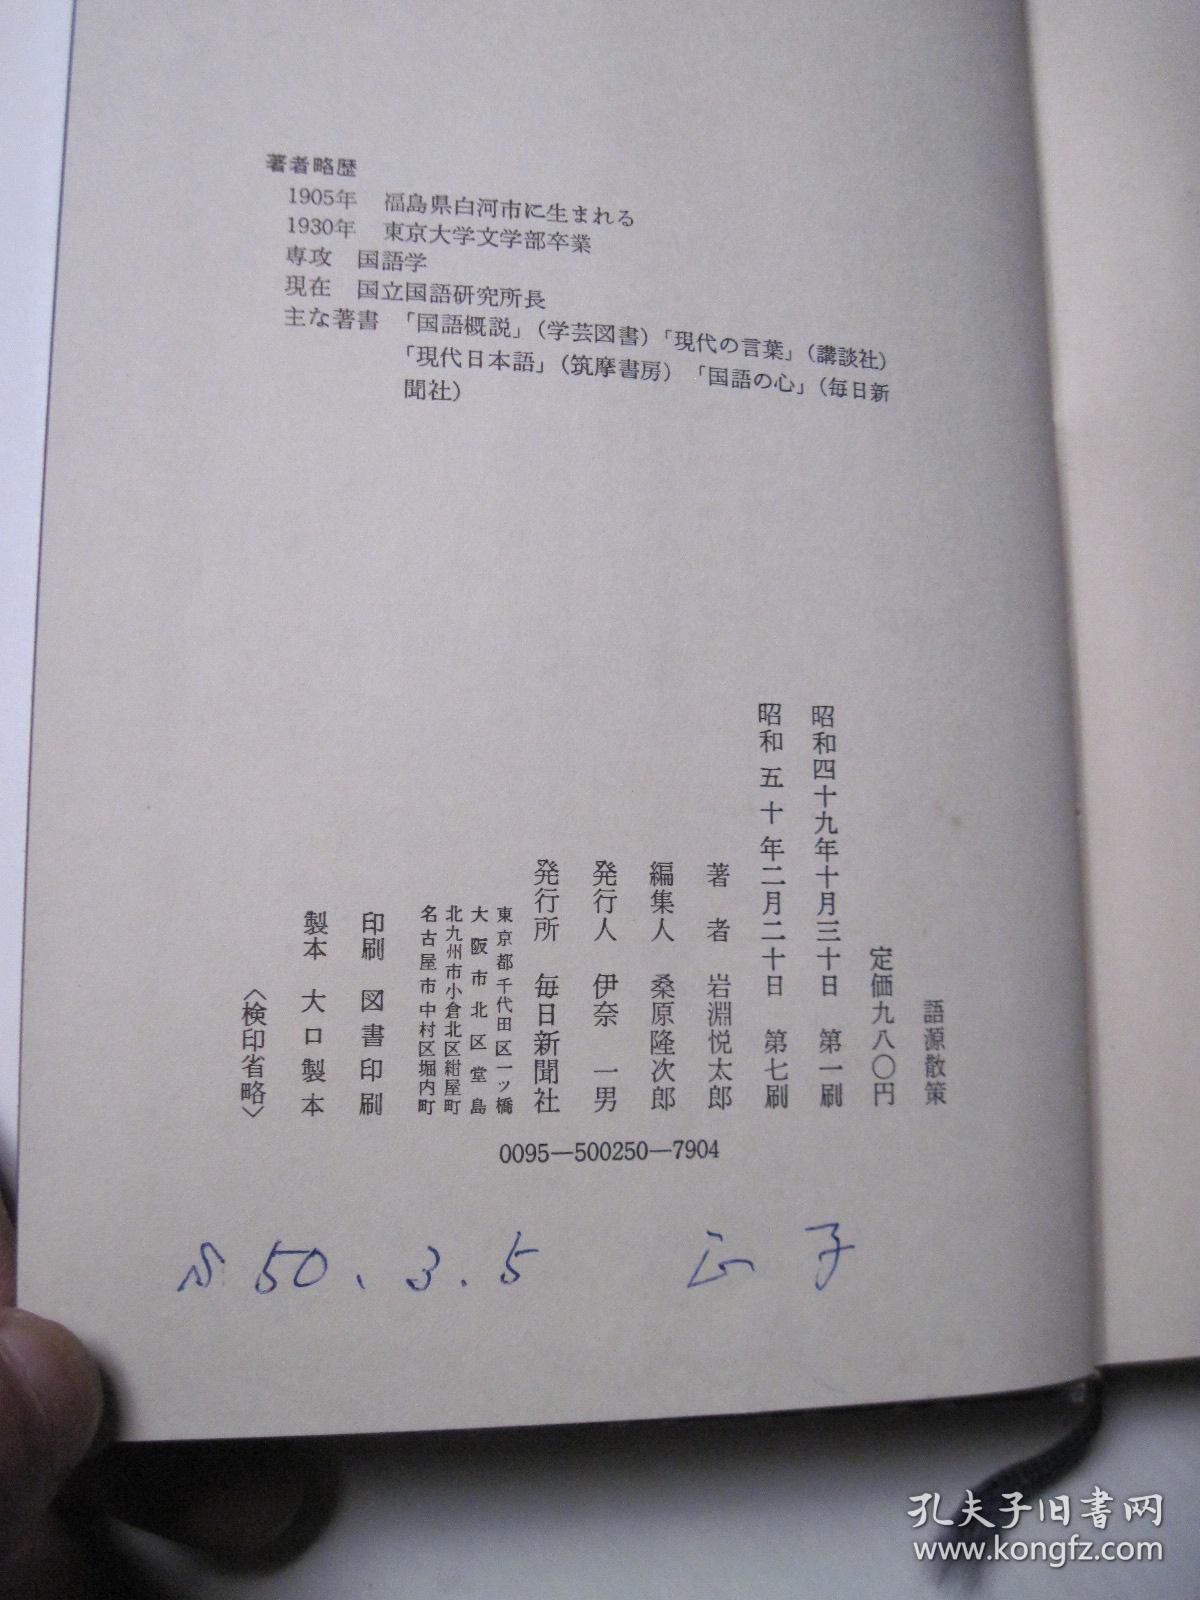 著者略歴
1905年　福島県白河市に生まれる
1930年　東京大学文学部卒業
専攻　国語学
現在　国立国語研究所長
主な著書　「国語概説」（学芸図書）「現代の言葉」（講談社）
「現代日本語」（筑摩書房）　「国語の心」（毎日新
聞社）
語源散策
定価九八〇円
昭和四十九年十月三十日　第一刷
昭和五十年二月二十日　第七刷
著者　岩淵悦太郎
編集人　桑原隆次郎
発行人　伊奈一男
発行所　毎日新聞社
東京都千代田区一ツ橋
大阪市北区堂島
北九州市小倉北区紺屋町
名古屋市中村区堀内町
印刷　図書印刷
製本　大口製本
〈検印省略〉
0095—500250—7904
S 50.3.5　正子
孔夫子旧书网
www.kongfz.com